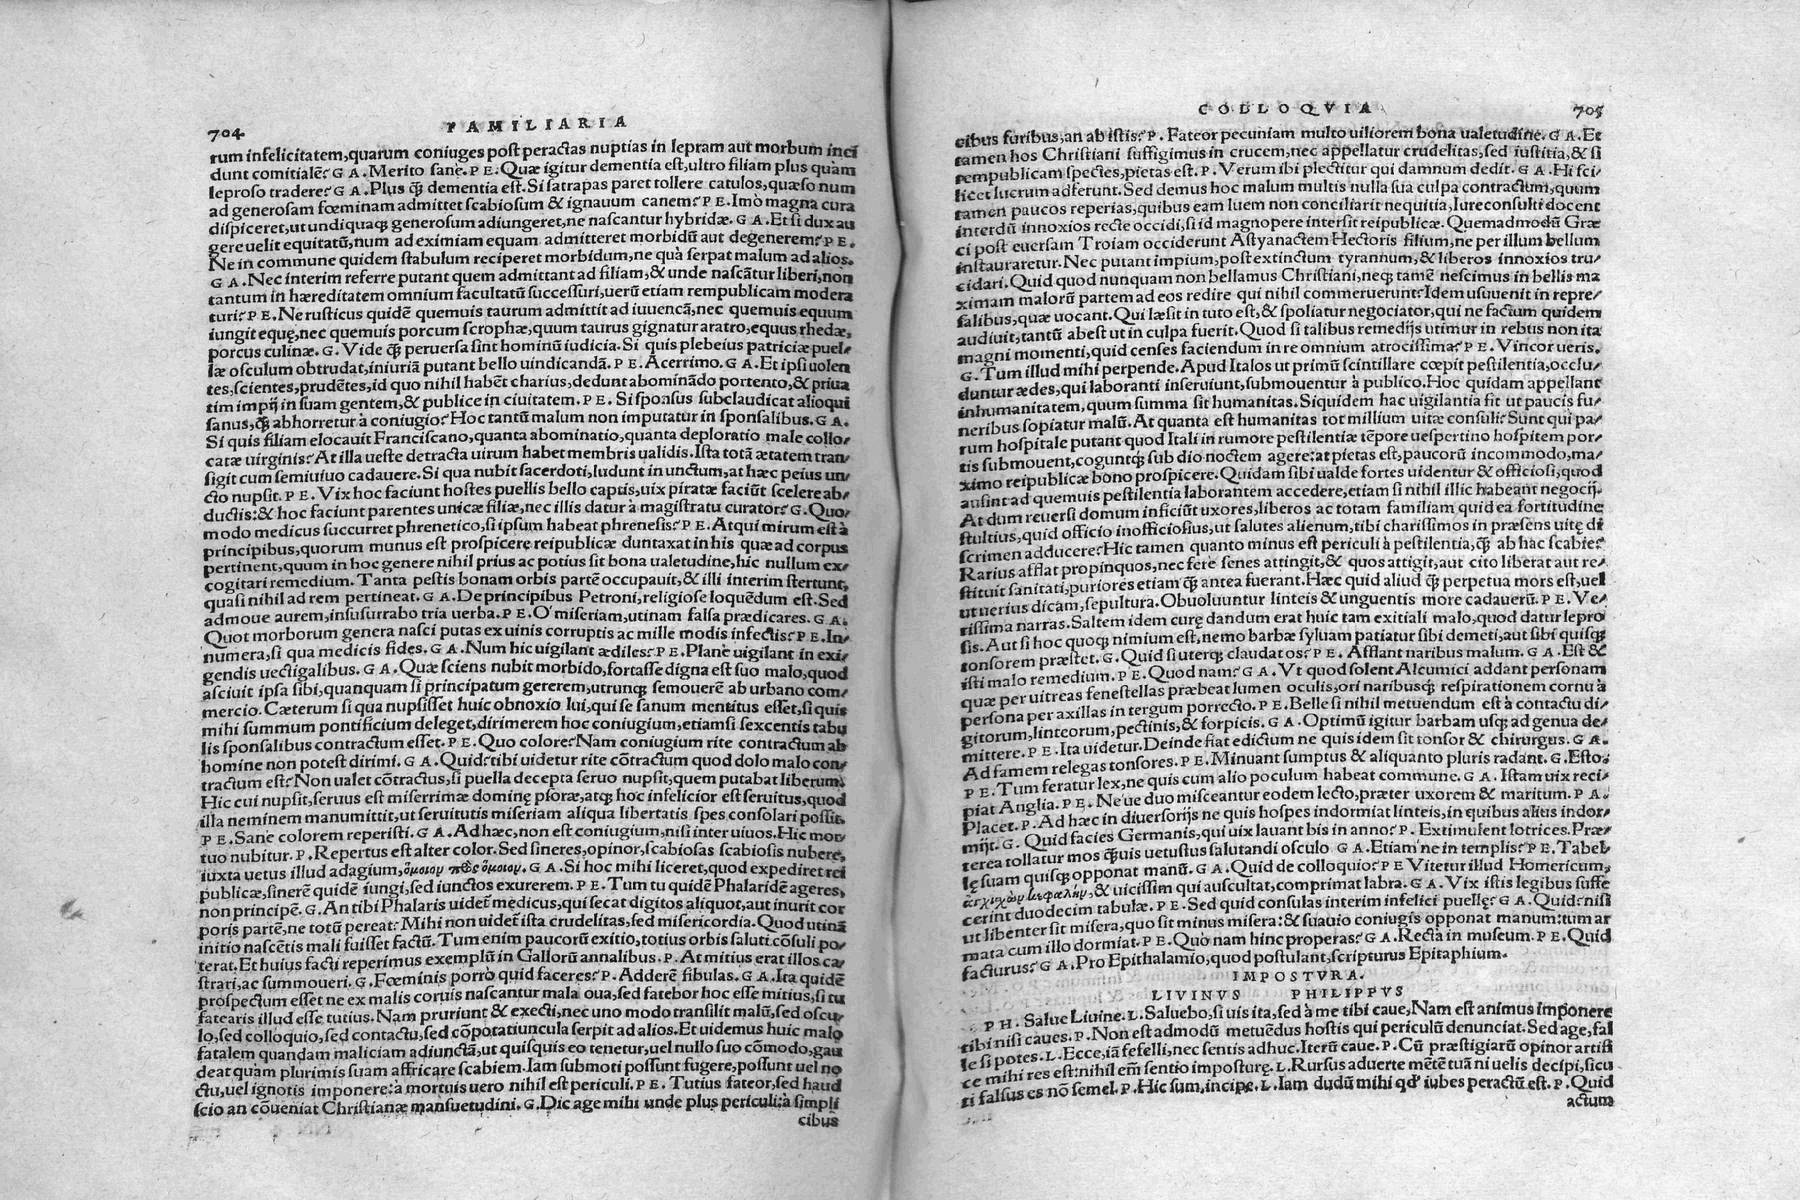 704 FAMILIARIA
rum infelicitatem,quarum coniuges post peractas nuptias in lepram aut morbum inci
dunt comitialē? GA. Merito sanè. PE. Quæ igitur dementia est,ultro filiam plus quàm
leproso tradere? GA. Plus ꝙ̃ dementia est. Si satrapas paret tollere catulos,quæso num
ad generosam fœminam admittet scabiosum & ignauum canem? PE. Imò magna cura
dispiceret,ut undiquaꝗ generosum adiungeret,ne nascantur hybridæ. GA. Et si dux au
gere uelit equitatū,num ad eximiam equam admitteret morbidū aut degenerem? PE.
Ne in commune quidem stabulum reciperet morbidum,ne quà serpat malum ad alios.
GA. Nec interim referre putant quem admittant ad filiam,& unde nascātur liberi,non
tantum in hæreditatem omnium facultatū successuri,uerū etiam rempublicam modera
turi? PE. Ne rusticus quidē quemuis taurum admittit ad iuuencā,nec quemuis equum
iungit equę,nec quemuis porcum scrophæ,quum taurus gignatur aratro,equus rhedæ,
porcus culinæ. G. Vide ꝙ̃ peruersa sint hominū iudicia. Si quis plebeius patriciæ puel-
læ osculum obtrudat,iniuriā putant bello uindicandā. PE. Acerrimo. GA. Et ipsi uolen
tes,scientes,prudētes,id quo nihil habēt charius,dedunt abominādo portento,& priua
tim impij in suam gentem,& publice in ciuitatem. PE. Si sponsus subclaudicat alioqui
sanus,ꝙ̃ abhorretur à coniugio? Hoc tantū malum non imputatur in sponsalibus. GA.
Si quis filiam elocauit Franciscano,quanta abominatio,quanta deploratio male collo-
catæ uirginis? At illa ueste detracta uirum habet membris ualidis. Ista totā ætatem tran-
sigit cum semiuiuo cadauere. Si qua nubit sacerdoti,ludunt in unctum,at hæc peius un-
cto nupsit. PE. Vix hoc faciunt hostes puellis bello captis,uix piratæ faciūt scelere ab-
ductis:& hoc faciunt parentes unicæ filiæ,nec illis datur à magistratu curator? G. Quo-
modo medicus succurret phrenetico,si ipsum habeat phrenesis? PE. Atqui mirum est à
principibus,quorum munus est prospicere reipublicæ duntaxat in his quæ ad corpus
pertinent,quum in hoc genere nihil prius ac potius sit bona ualetudine,hic nullum ex-
cogitari remedium. Tanta pestis bonam orbis partē occupauit,& illi interim stertunt,
quasi nihil ad rem pertineat. GA. De principibus Petroni,religiose loquēdum est. Sed
admoue aurem,insusurrabo tria uerba. PE. O' miseriam,utinam falsa prædicares. GA.
Quot morborum genera nasci putas ex uinis corruptis ac mille modis infectis? PE. In-
numera,si qua medicis fides. GA. Num hic uigilant ædiles? PE. Planè uigilant in exi-
gendis uectigalibus. GA. Quæ sciens nubit morbido,fortasse digna est suo malo,quod
asciuit ipsa sibi,quanquam si principatum gererem,utrunqꝫ semouerē ab urbano com-
mercio. Cæterum si qua nupsisset huic obnoxio lui,qui se sanum mentitus esset,si quis
mihi summum pontificium deleget,dirimerem hoc coniugium,etiamsi sexcentis tabu
lis sponsalibus contractum esset. PE. Quo colore? Nam coniugium rite contractum ab
homine non potest dirimi. GA. Quid? tibi uidetur rite cōtractum quod dolo malo con-
tractum est? Non ualet cōtractus,si puella decepta seruo nupsit,quem putabat liberum.
Hic cui nupsit,seruus est miserrimæ dominę psoræ,atqꝫ hoc infelicior est seruitus,quod
illa neminem manumittit,ut seruitutis miseriam aliqua libertatis spes consolari possit.
PE. Sane colorem reperisti. GA. Ad hæc,non est coniugium,nisi inter uiuos. Hic mor
tuo nubitur. P. Repertus est alter color. Sed sineres,opinor,scabiosas scabiosis nubere,
iuxta uetus illud adagium,ὅμοιον πρὸς ὅμοιον. GA. Si hoc mihi liceret,quod expediret rei
publicæ,sinerē quidē iungi,sed iunctos exurerem. PE. Tum tu quidē Phalaridē ageres,
non principē. G. An tibi Phalaris uidet́ medicus,qui secat digitos aliquot,aut inurit cor
poris partē,ne totū pereat? Mihi non uidet́ ista crudelitas,sed misericordia. Quod utinā
initio nascētis mali fuisset factū. Tum enim paucorū exitio,totius orbis saluti cōsuli po-
terat. Et huius facti reperimus exemplū in Gallorū annalibus. P. At mitius erat illos ca-
strari,ac summoueri. G. Fœminis porrò quid faceres? P. Adderē fibulas. GA. Ita quidē
prospectum esset ne ex malis coruis nascantur mala oua,sed fatebor hoc esse mitius,si tu
fatearis illud esse tutius. Nam pruriunt & execti,nec uno modo transilit malū,sed oscu-
lo,sed colloquio,sed contactu,sed cōpotatiuncula serpit ad alios. Et uidemus huic malo
fatalem quandam maliciam adiunctā,ut quisquis eo tenetur,uel nullo suo cōmodo,gau
deat quàm plurimis suam affricare scabiem. Iam submoti possunt fugere,possunt uel no
ctu,uel ignotis imponere:à mortuis uero nihil est periculi. PE. Tutius fateor,sed haud
scio an cōueniat Christianæ mansuetudini. G. Dic age mihi unde plus periculi:à simpli
cibus
COLLOQVIA 705
cibus furibus,an ab istis? P. Fateor pecuniam multo uiliorem bona ualetudine. GA. Et
tamen hos Christiani suffigimus in crucem,nec appellatur crudelitas,sed iustitia,& si
rempublicam spectes,pietas est. P. Verum ibi plectitur qui damnum dedit. GA. Hi sci-
licet lucrum adferunt. Sed demus hoc malum multis nulla sua culpa contractum,quum
tamen paucos reperias,quibus eam luem non conciliarit nequitia,Iureconsulti docent
interdū innoxios recte occidi,si id magnopere intersit reipublicæ. Quemadmodū Græ
ci post euersam Troiam occiderunt Astyanactem Hectoris filium,ne per illum bellum
instauraretur. Nec putant impium,post extinctum tyrannum,& liberos innoxios tru-
cidari. Quid quod nunquam non bellamus Christiani,neqꝫ tamē nescimus in bellis ma
ximam malorū partem ad eos redire qui nihil commeruerunt? Idem usuuenit in repre-
salibus,quæ uocant. Qui læsit in tuto est,& spoliatur negociator,qui ne factum quidem
audiuit,tantū abest ut in culpa fuerit. Quod si talibus remedijs utimur in rebus non ita
magni momenti,quid censes faciendum in re omnium atrocissima? PE. Vincor ueris.
G. Tum illud mihi perpende. Apud Italos ut primū scintillare cœpit pestilentia,occlu-
duntur ædes,qui laboranti inseruiunt,submouentur à publico. Hoc quidam appellant
inhumanitatem,quum summa sit humanitas. Siquidem hac uigilantia fit ut paucis fu-
neribus sopiatur malū. At quanta est humanitas tot millium uitæ consuli? Sunt qui pa-
rum hospitale putant quod Itali in rumore pestilentiæ tēpore uespertino hospitem por-
tis submouent,coguntqꝫ sub dio noctem agere:at pietas est,paucorū incommodo,ma-
ximo reipublicæ bono prospicere. Quidam sibi ualde fortes uidentur & officiosi,quod
ausint ad quemuis pestilentia laborantem accedere,etiam si nihil illic habeant negocij.
At dum reuersi domum inficiūt uxores,liberos ac totam familiam quid ea fortitudine
stultius,quid officio inofficiosius,ut salutes alienum,tibi charissimos in præsens uitę di
scrimen adducere? Hic tamen quanto minus est periculi à pestilentia,ꝙ̃ ab hac scabie?
Rarius afflat propinquos,nec ferè senes attingit,& quos attigit,aut cito liberat aut re-
stituit sanitati,puriores etiam ꝙ̃ antea fuerant. Hæc quid aliud ꝙ̃ perpetua mors est,uel
ut uerius dicam,sepultura. Obuoluuntur linteis & unguentis more cadauerū. PE. Ve-
rissima narras. Saltem idem curę dandum erat huic tam exitiali malo,quod datur lepro
sis. Aut si hoc quoqꝫ nimium est,nemo barbæ syluam patiatur sibi demeti,aut sibi quisqꝫ
tonsorem præstet. G. Quid si uterqꝫ claudat os? PE. Afflant naribus malum. GA. Est &
isti malo remedium. PE. Quod nam? GA. Vt quod solent Alcumici addant personam
quæ per uitreas fenestellas præbeat lumen oculis,ori naribusqꝫ respirationem cornu à
persona per axillas in tergum porrecto. PE. Belle si nihil metuendum est à contactu di-
gitorum,linteorum,pectinis,& forpicis. GA. Optimū igitur barbam usqꝫ ad genua de-
mittere. PE. Ita uidetur. Deinde fiat edictum ne quis idem sit tonsor & chirurgus. GA.
Ad famem relegas tonsores. PE. Minuant sumptus & aliquanto pluris radant. G. Esto.
PE. Tum feratur lex,ne quis cum alio poculum habeat commune. GA. Istam uix reci-
piat Anglia. PE. Ne'ue duo misceantur eodem lecto,præter uxorem & maritum. PA.
Placet. P. Ad hæc in diuersorijs ne quis hospes indormiat linteis,in quibus alius indor-
mijt. G. Quid facies Germanis,qui uix lauant bis in anno? P. Extimulent lotrices. Præ-
terea tollatur mos ꝙ̃uis uetustus salutandi osculo GA. Etiam'ne in templis? PE. Tabel-
lę suam quisqꝫ opponat manū. GA. Quid de colloquio? PE Vitetur illud Homericum,
ἄγχι σχὼν κεφαλὴν,& uicissim qui auscultat,comprimat labra. GA. Vix istis legibus suffe
cerint duodecim tabulæ. PE. Sed quid consulas interim infelici puellę? GA. Quid? nisi
ut libenter sit misera,quo sit minus misera:& suauio coniugis opponat manum:tum ar
mata cum illo dormiat. PE. Quò nam hinc properas? GA. Rectà in museum. PE. Quid
facturus? GA. Pro Epithalamio,quod postulant,scripturus Epitaphium.
IMPOSTVRA.
LIVINVS PHILIPPVS
PH. Salue Liuine. L. Saluebo,si uis ita,sed à me tibi caue,Nam est animus imponere
tibi nisi caues. P. Non est admodū metuēdus hostis qui periculū denunciat. Sed age,fal
le si potes. L. Ecce,iā fefelli,nec sentis adhuc. Iterū caue. P. Cū præstigiarū opinor artifi
ce mihi res est:nihil em̄ sentio imposturę. L. Rursus aduerte mētē tuā ni uelis decipi,sicu
ti falsus es nō semel. P. Hic sum,incipe. L. Iam dudū mihi qd' iubes peractū est. P. Quid
actum